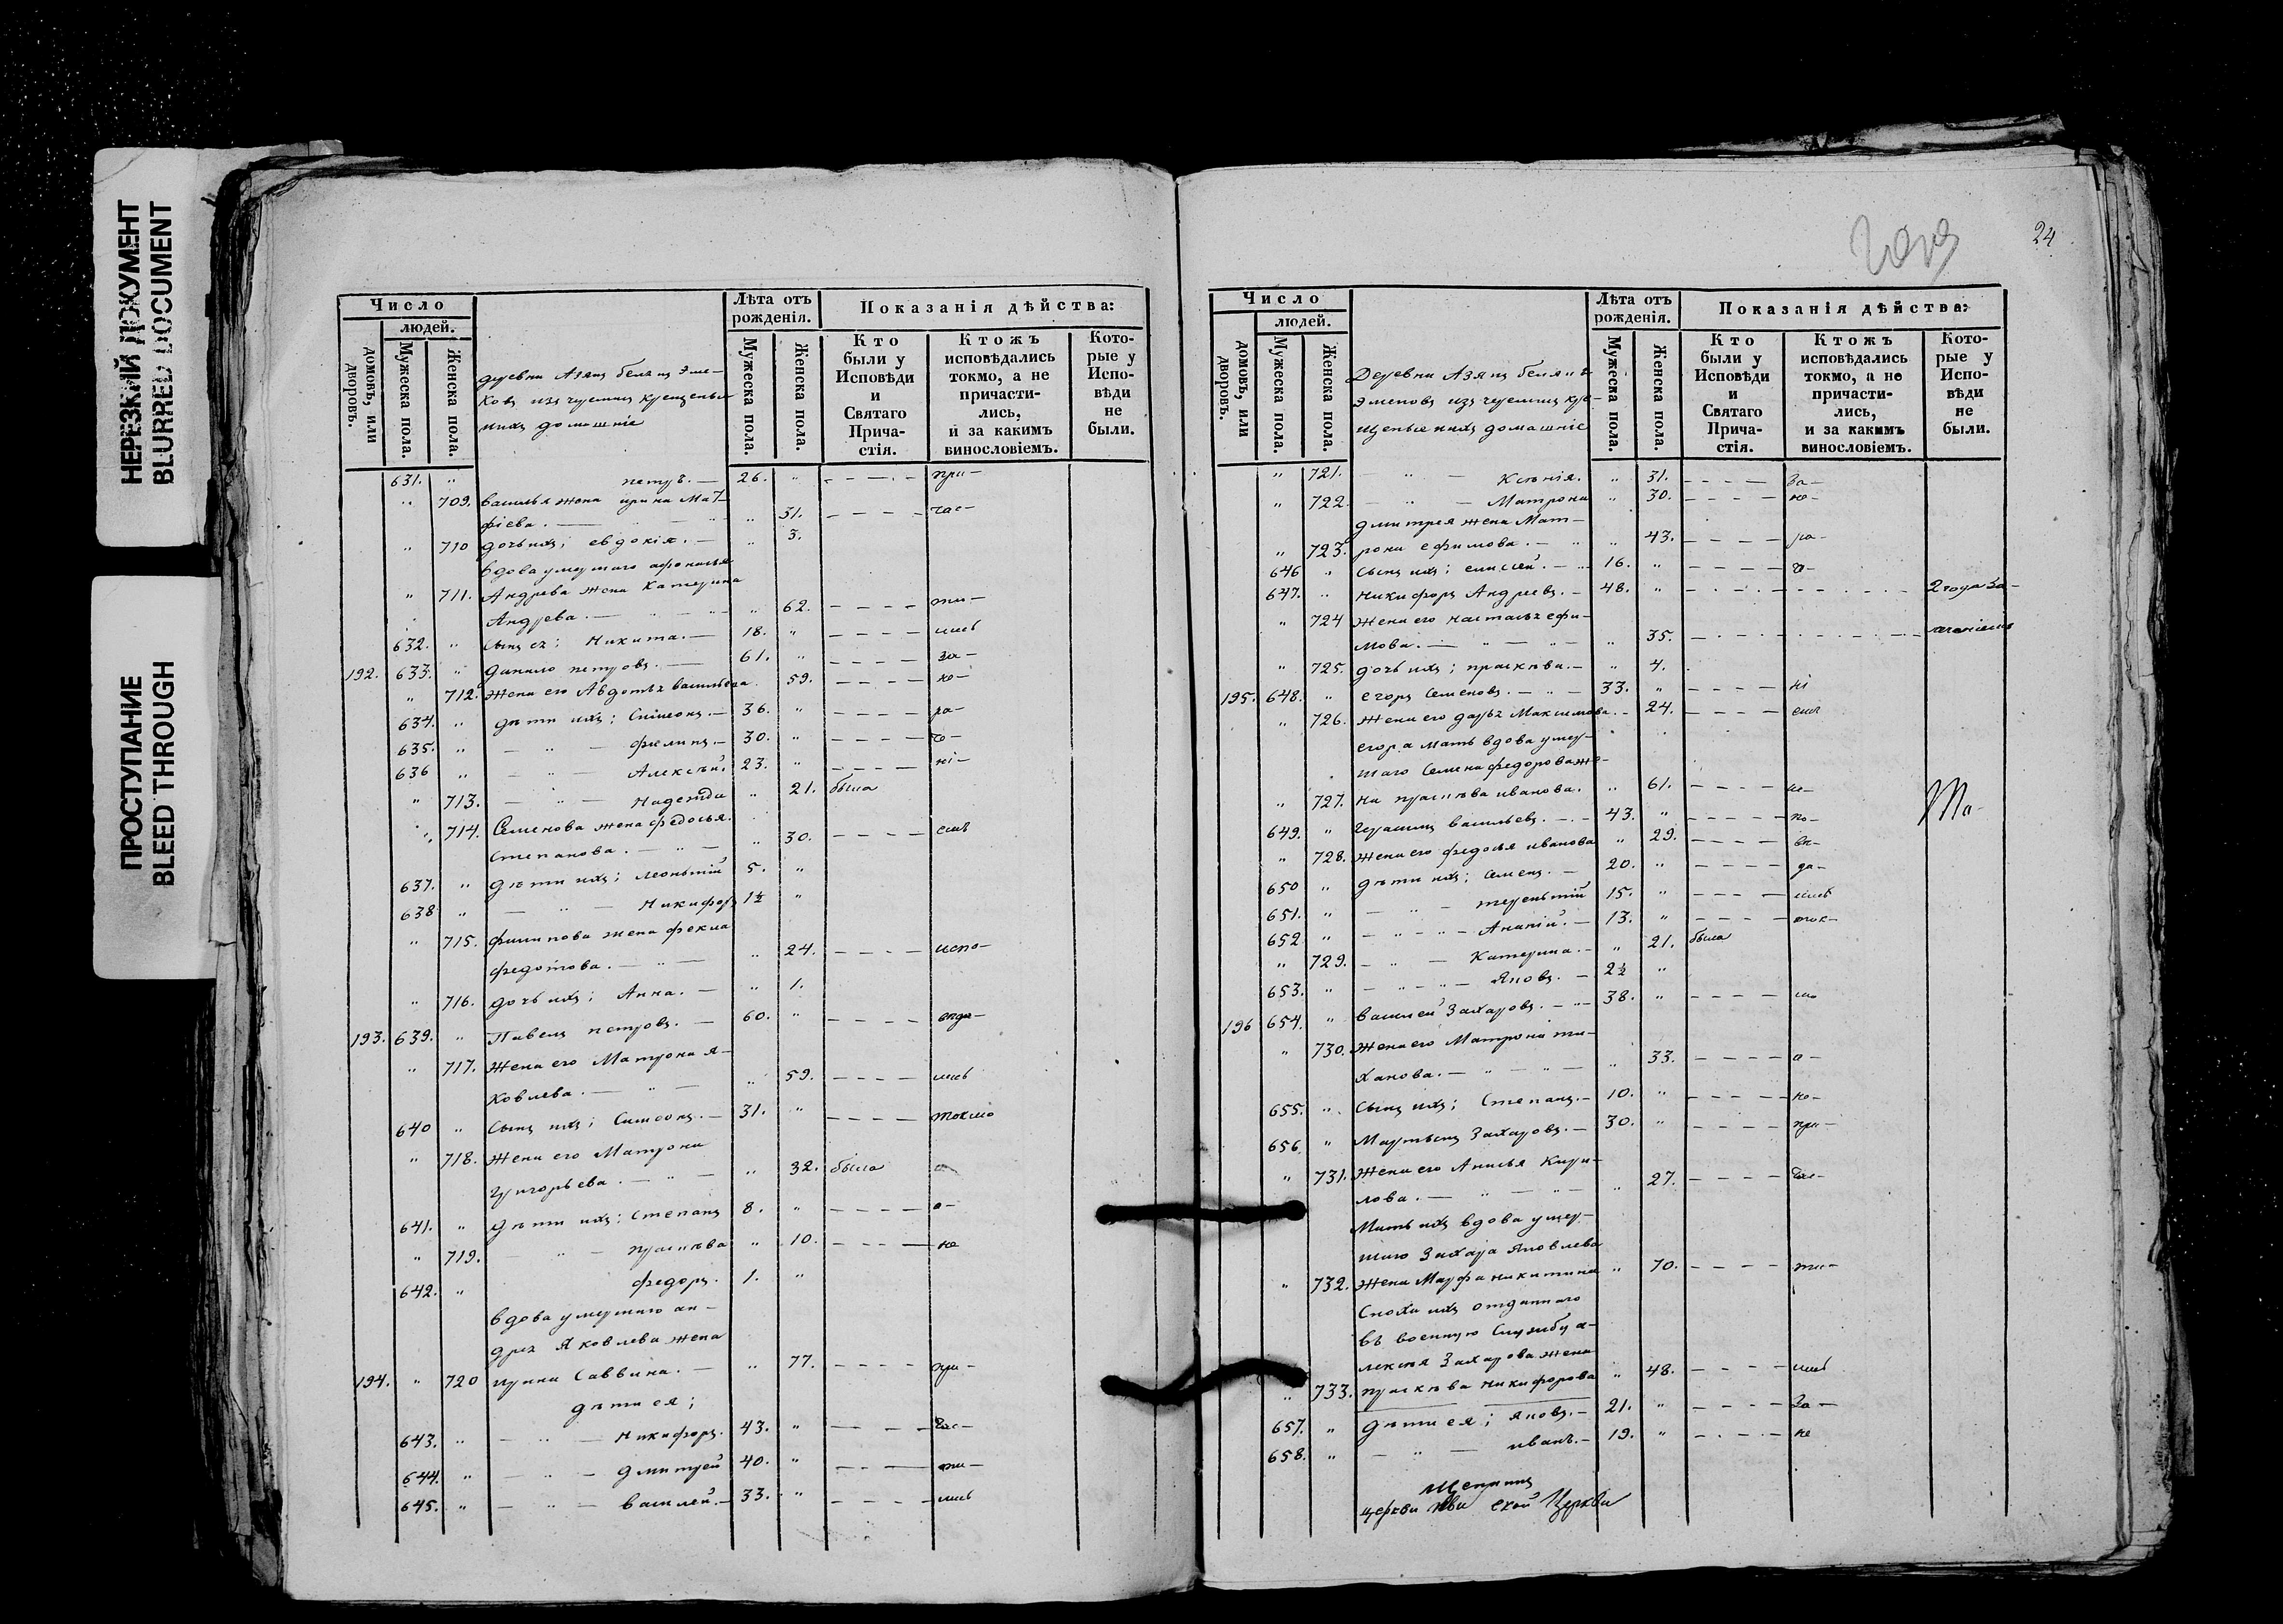 НЕРЕЗКИЙ ДОКУМЕНТ
BLURRED DOCUMENT
ПРОСТУПАНИЕ
BLEED THROUGH
Число
людей.
домовъ, или дворовъ.
Мужеска пола.
Женска пола.
деревни Азяц беляц Эме-
ковъ изъ чувашъ крещеныи
нихъ домашніе
Лѣта отъ рожденія.
Мужеска пола.
Женска пола.
Показанія дѣйства:
Кто были у Исповѣди и Святаго Прича-стія.
Ктожъ исповѣдались токмо, а не причасти-лись, и за какимъ винословіемъ.
Кото-рые у Испо-вѣди не были.
631. " петръ. — 26. " при-
" 709. васильа жена ирина Мат-
фіева. — " 31. час-
" 710 дочь ихъ; евдокія. — " 3.
вдова умершаго афонасья
" 711. Андрева жена Катерина
Андрева. — " 62. ти-
632. " сынъ ея; Никита. — 18. " лись
192. 633. " данило петровъ. — 61. " за-
" 712. жена его Авдотья васильева 59. не-
634. " дѣти ихъ; Симеонъ. — 36. " ра-
635. " — " — филипъ. — 30. " че-
636 " — " — Алексѣй. 23. " ні-
" 713. — " — Надежда " 21. была
" 714. Семенова жена федосья
Степанова. — " — " 30. емъ
637. " дѣти ихъ; леонтій 5. "
638 " — " — Никифоръ 1½ "
" 715. филипова жена фекла
федотова. — " — " 24. испо-
" 716. дочь ихъ; Анна. — " 1.
193. 639. " Павелъ петровъ. — 60. " веда-
" 717. жена его Матрона Я-
ковлева. — " — " 59. лись
640 " сынъ ихъ; Симеонъ. — 31. " токмо
" 718. жена его Матрона
Григорьева. — " — " 32. была
641. " дѣти ихъ; Степанъ 8. " а-
" 719. — " — праскѣва " 10. не
642. " федоръ. 1. "
вдова умершаго ан-
дрея Яковлева жена
194. " 720 ирина Саввина. — " 77. при-
дѣти ея;
643. " — " — Никифоръ. 43. " час-
644. " — " — дмитрей 40. " ти-
645. " — " — василей. — 33. " лись
24
Число
людей.
домовъ, или дворовъ.
Мужеска пола.
Женска пола.
Деревни Азяц беляц
Эмековъ изъ чувашъ кре-
щеныи нихъ домашніе
Лѣта отъ рожденія.
Мужеска пола.
Женска пола.
Показанія дѣйства:
Кто были у Исповѣди и Святаго Прича-стія.
Ктожъ исповѣдались токмо, а не причасти-лись, и за какимъ винословіемъ.
Кото-рые у Испо-вѣди не были.
" 721. — " — Ксенія. " 31. за-
" 722. — " — Матрона " 30. не-
дмитрея жена Мат-
" 723. рона ефимова. — " " 43. ра-
646 " сынъ ихъ; елисей. — 16. " че-
647. " Никифоръ Андреевъ. — 48. " 2 года за-
" 724 жена его Наталья ефи-
мова. — " — " — " 35.
" 725. дочь ихъ; праскѣва. — " 4.
195. 648. " егоръ Семеновъ. — " — 33. " ні
" 726. жена его дарья Максимова. — 24. емъ
егора мать вдова умер-
шаго Семена федорова же-
" 727. на праскѣва иванова. " 61. ис-
649. " герасимъ васильевъ. — 43. " по-
" 728. жена его федосья иванова " 29. ве-
650 " дѣти ихъ; Семенъ. — 20. " да-
651. " — " — терентій 15. " лись
652 " — " — Ананій. — 13. " ток-
" 729. — " — Катерина. — " 21. была
653. " — " — " — Яковъ. — 2½ "
196 654. " василей Захаровъ. — " — 38. " мо
" 730. жена его Матрона ти-
ханова. — " — " — " 33. а-
655. " сынъ ихъ; Степанъ. — 10. " не-
656 " Мартынъ Захаровъ. — 30. " при-
" 731. жена его Анисья Кири-
лова. — " — " — " 27. час-
Мать ихъ вдова умер-
шаго Захара Яковлева
" 732. жена Марфа Никитина " 70. ти-
Сноха ихъ отданнаго
въ военную Службу а-
лексѣя Захарова жена
" 733. праскѣва Никифорова " 48. лись
657. " дѣти ея; Яковъ. — 21. " за-
658. " — " — иванъ. — 19. " не